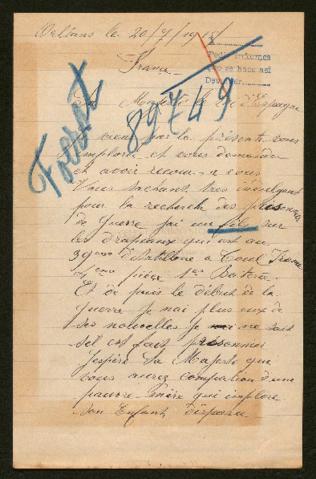 Orléans le 20/7/1915
France
Pedir informes
A sa Majesté le Roi d'Espagne
89749
Forest
Je viens par la présente vous
implorer et vous demander
et avoir recour a vous
Vous sachant tres indulgent
pour la recherche des prisonniers
de Guerre jai un fils sur
les drapeaux qui est au
39eme d'Artillerie a Toul France
pièce 1ere Baterie
Et de puis le début de la
Guerre je nai plus eux de
ses nouvelles je ne sait
sil est fait prisonnier
J'espère Sa Majesté que
vous aurez compation d'une
pauvre Mère qui implore
son Enfant disparu